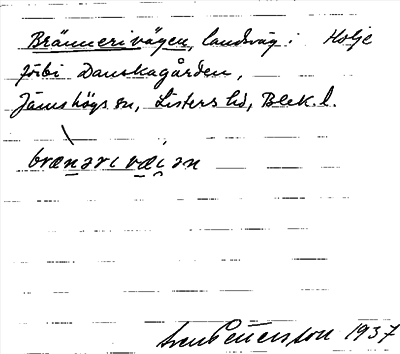 Brännerivägen, landsväg i Holje
förbi Danskagården,
Jämshögs sn, Listers hd, Blek. l.
brænəri væi̯ən
Sven Petersson 1937